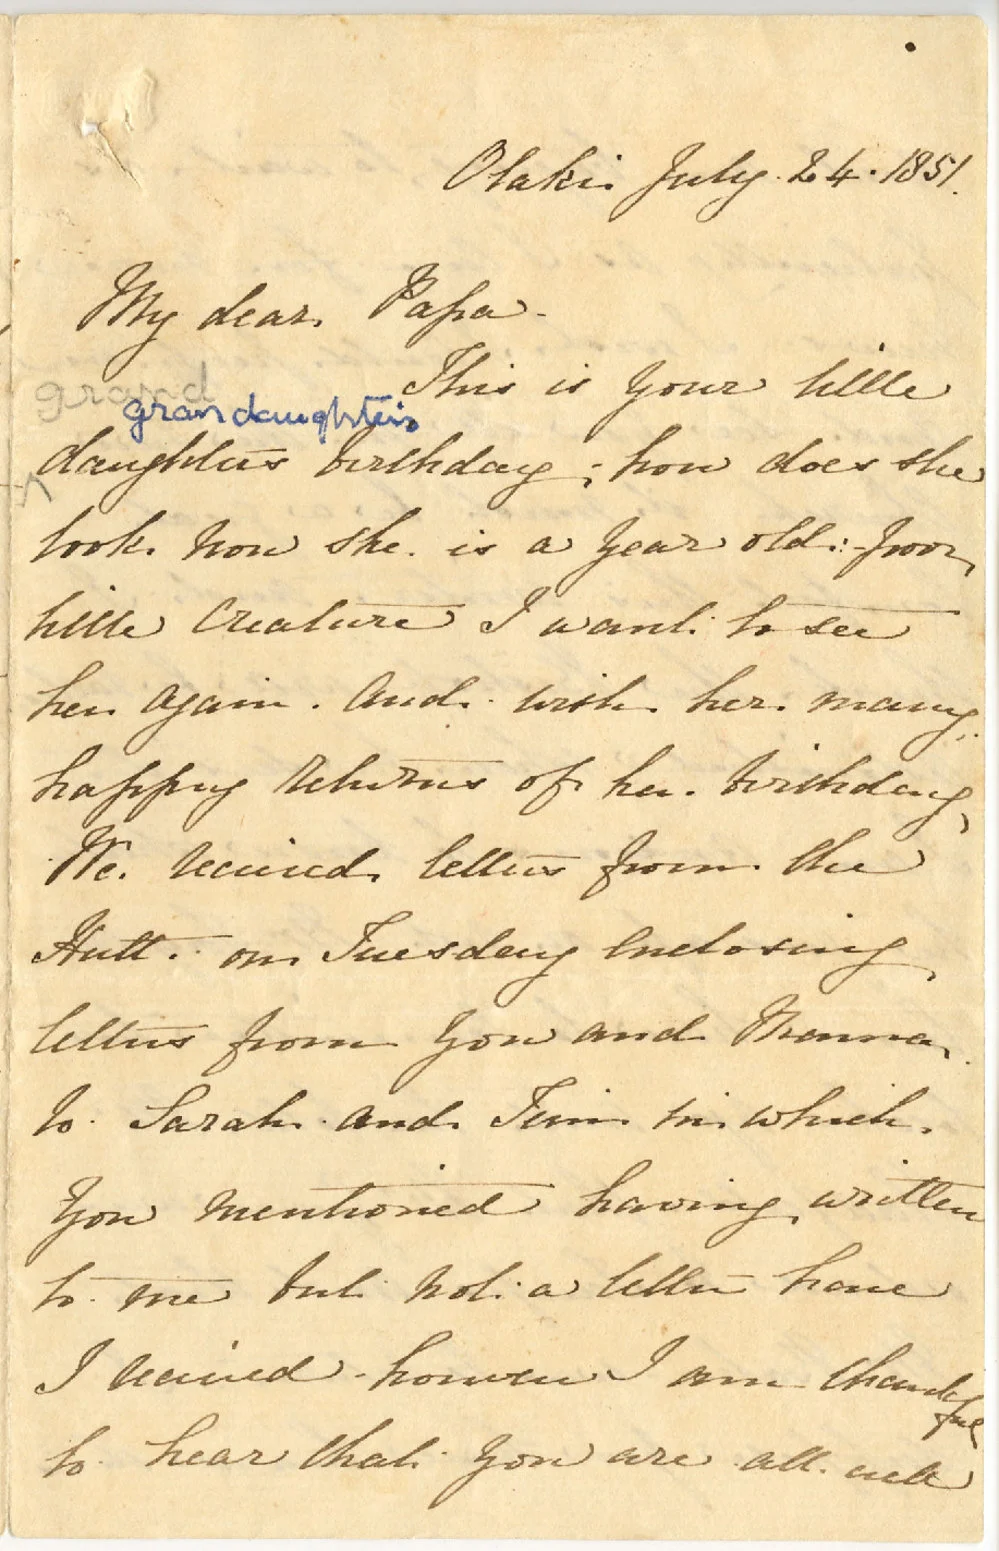 Otaki July 24. 1851.
My dear Papa-
This is your little
grand
grandaughters
daughters birthday; how does she
look now she is a year old:- poor
little creature I want to see
her again. And wish her many
happy returns of her birthday,
We received letters from the
Hutt. on Tuesday enclosing
letters from you and Mamma
to Sarah and in which.
You mentioned having written
to me but not a letter have
I received - however I am thankful
to hear that you are all well